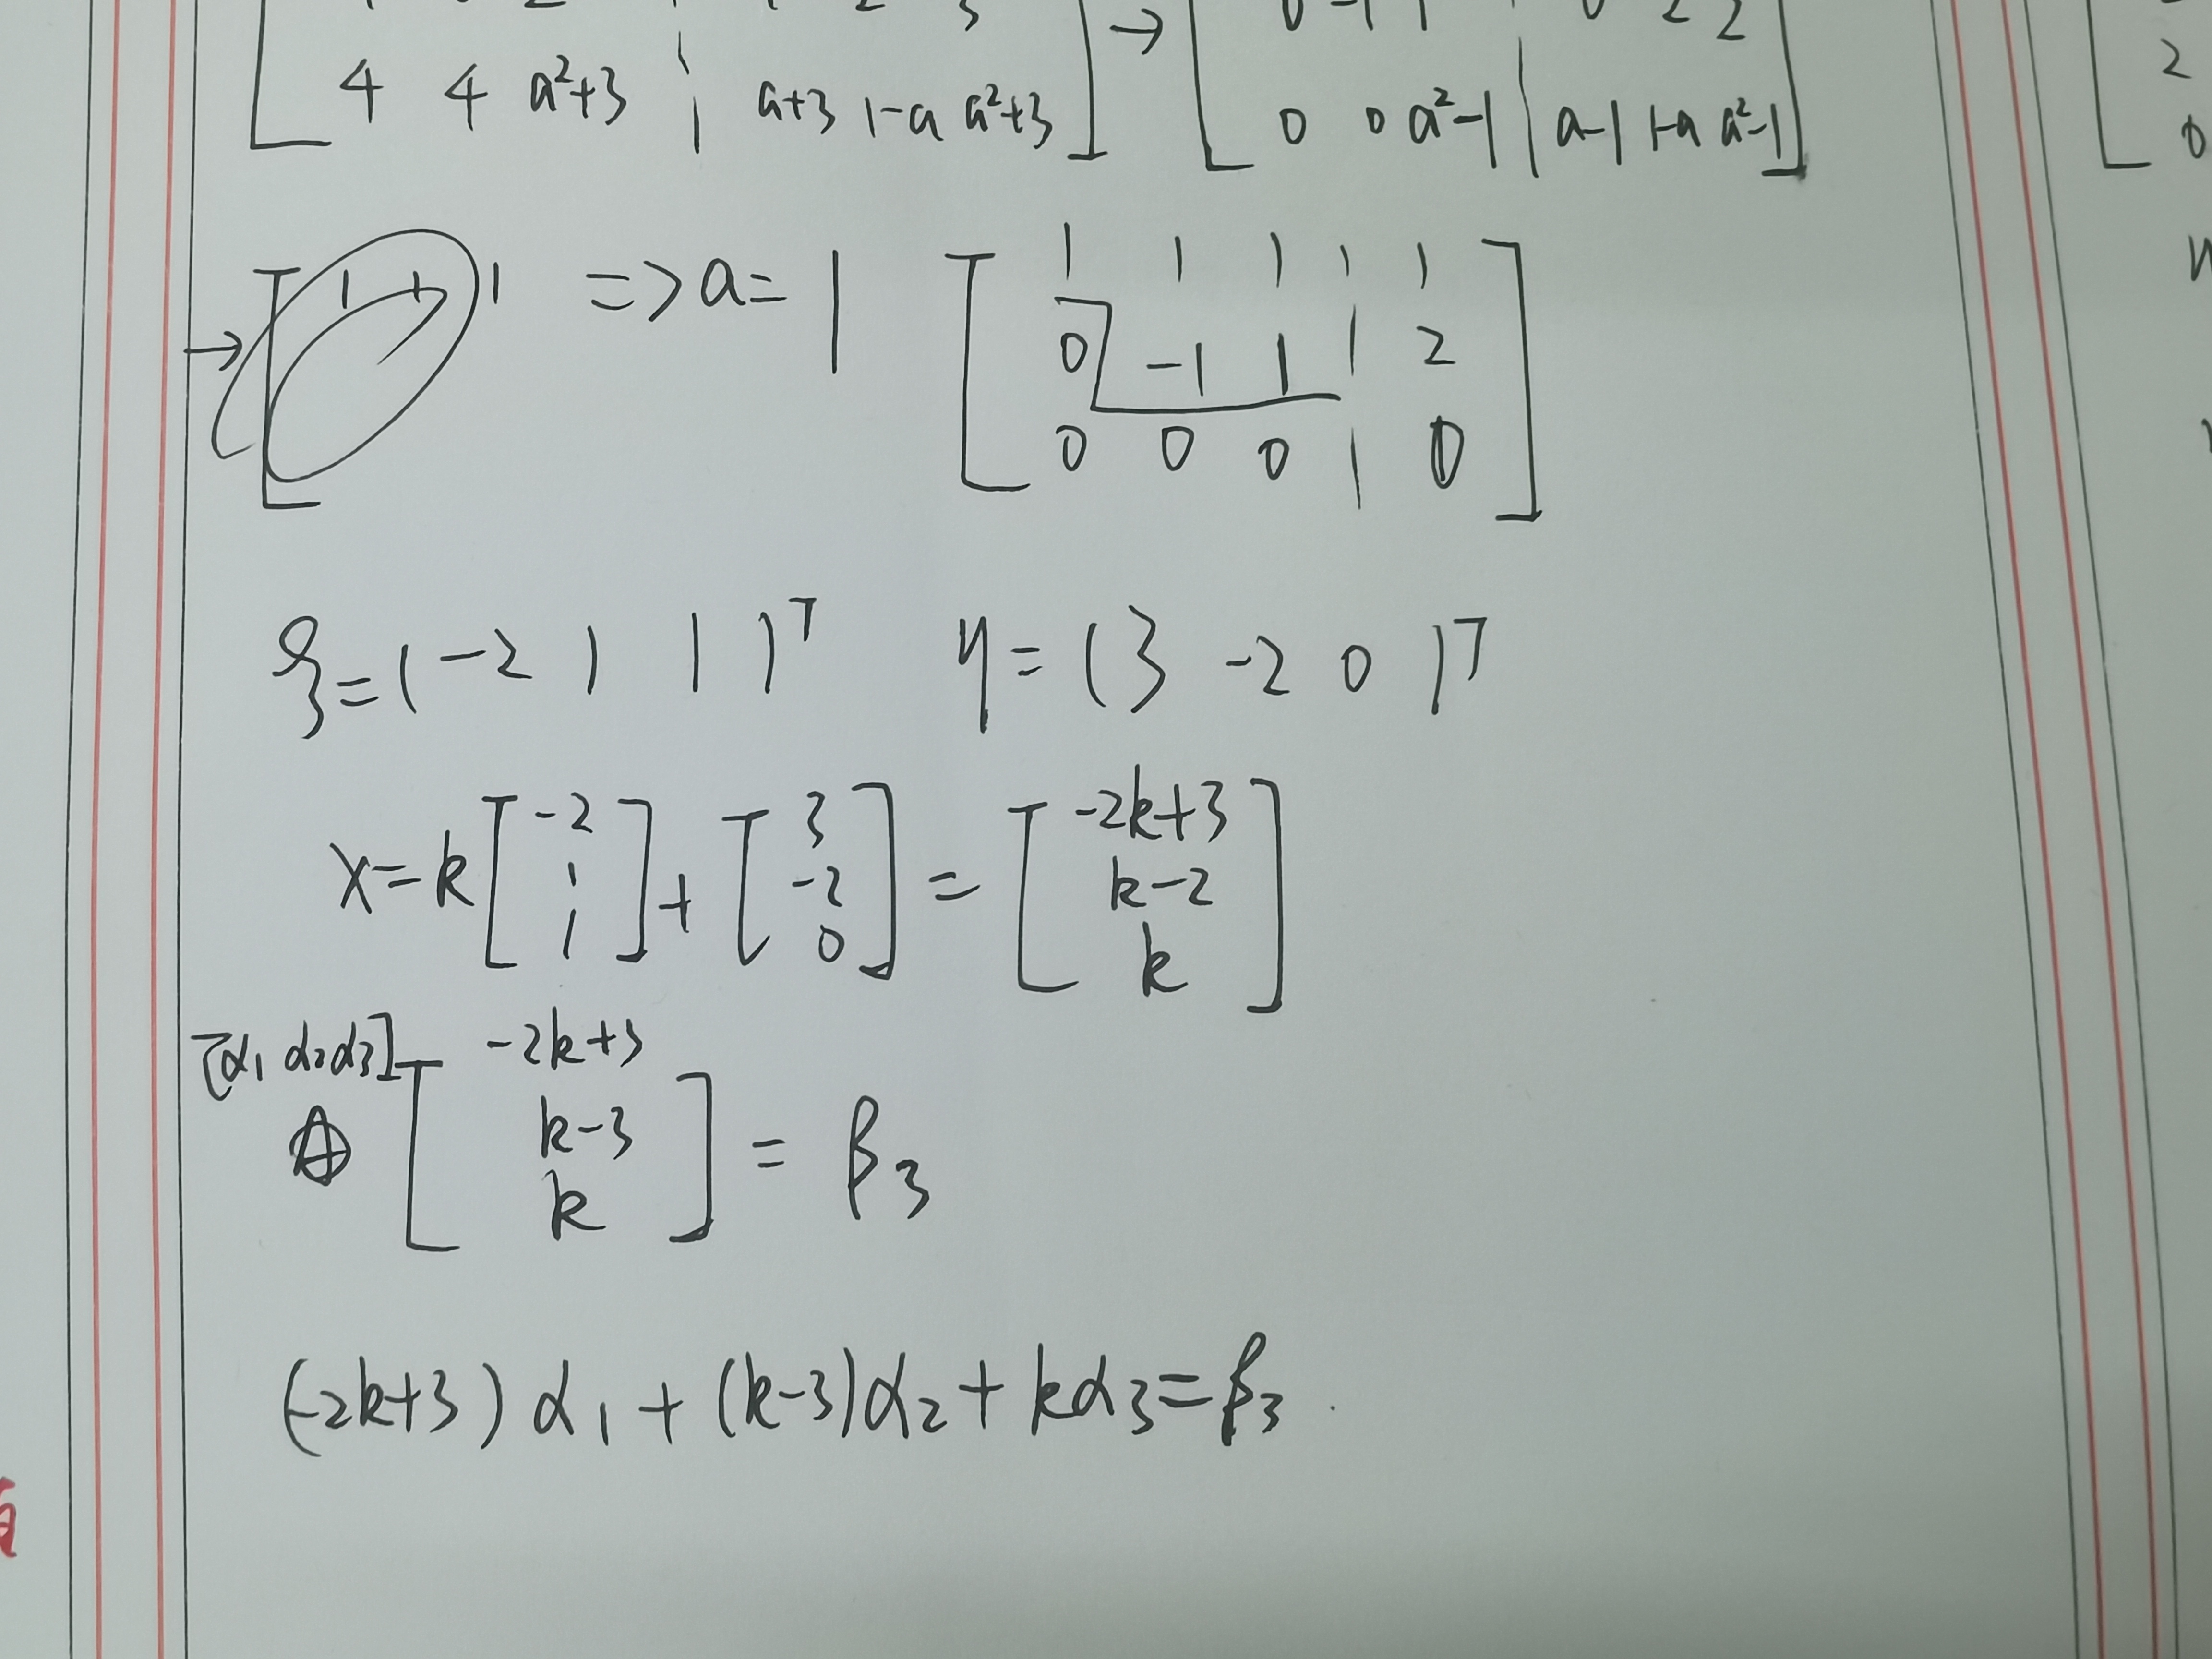 4 4 a²+3 | a+3 1-a a²+3 ] → [ 0 -1 1 | 0 2 2
0 0 a²-1 | a-1 1-a a²-1 ]
→ [ 1 1 1 => a = 1 [ 1 1 1 | 1
0 -1 1 | 2
0 0 0 | 0 ]
ξ = ( -2 1 1 )ᵀ η = ( 3 -2 0 )ᵀ
x = k [ -2 1 1 ] + [ 3 -2 0 ] = [ -2k+3 k-2 k ]
[α₁ α₂ α₃] [ -2k+3
k-3 ] = β₃
k
(-2k+3) α₁ + (k-3) α₂ + kα₃ = β₃ .